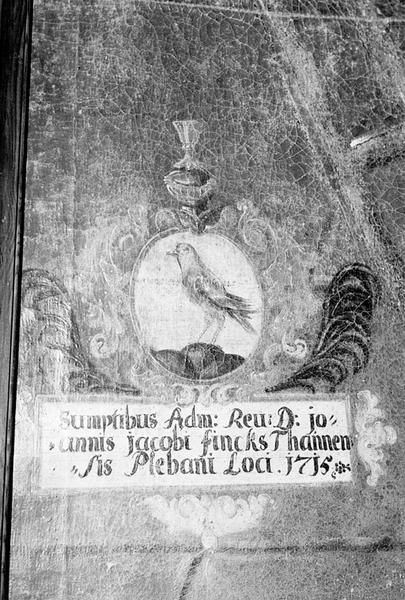 Sumptibus Adm: Reu: D: jo„
„annis jacobi fincks Thannen
„sis Plebani Loci. 1715